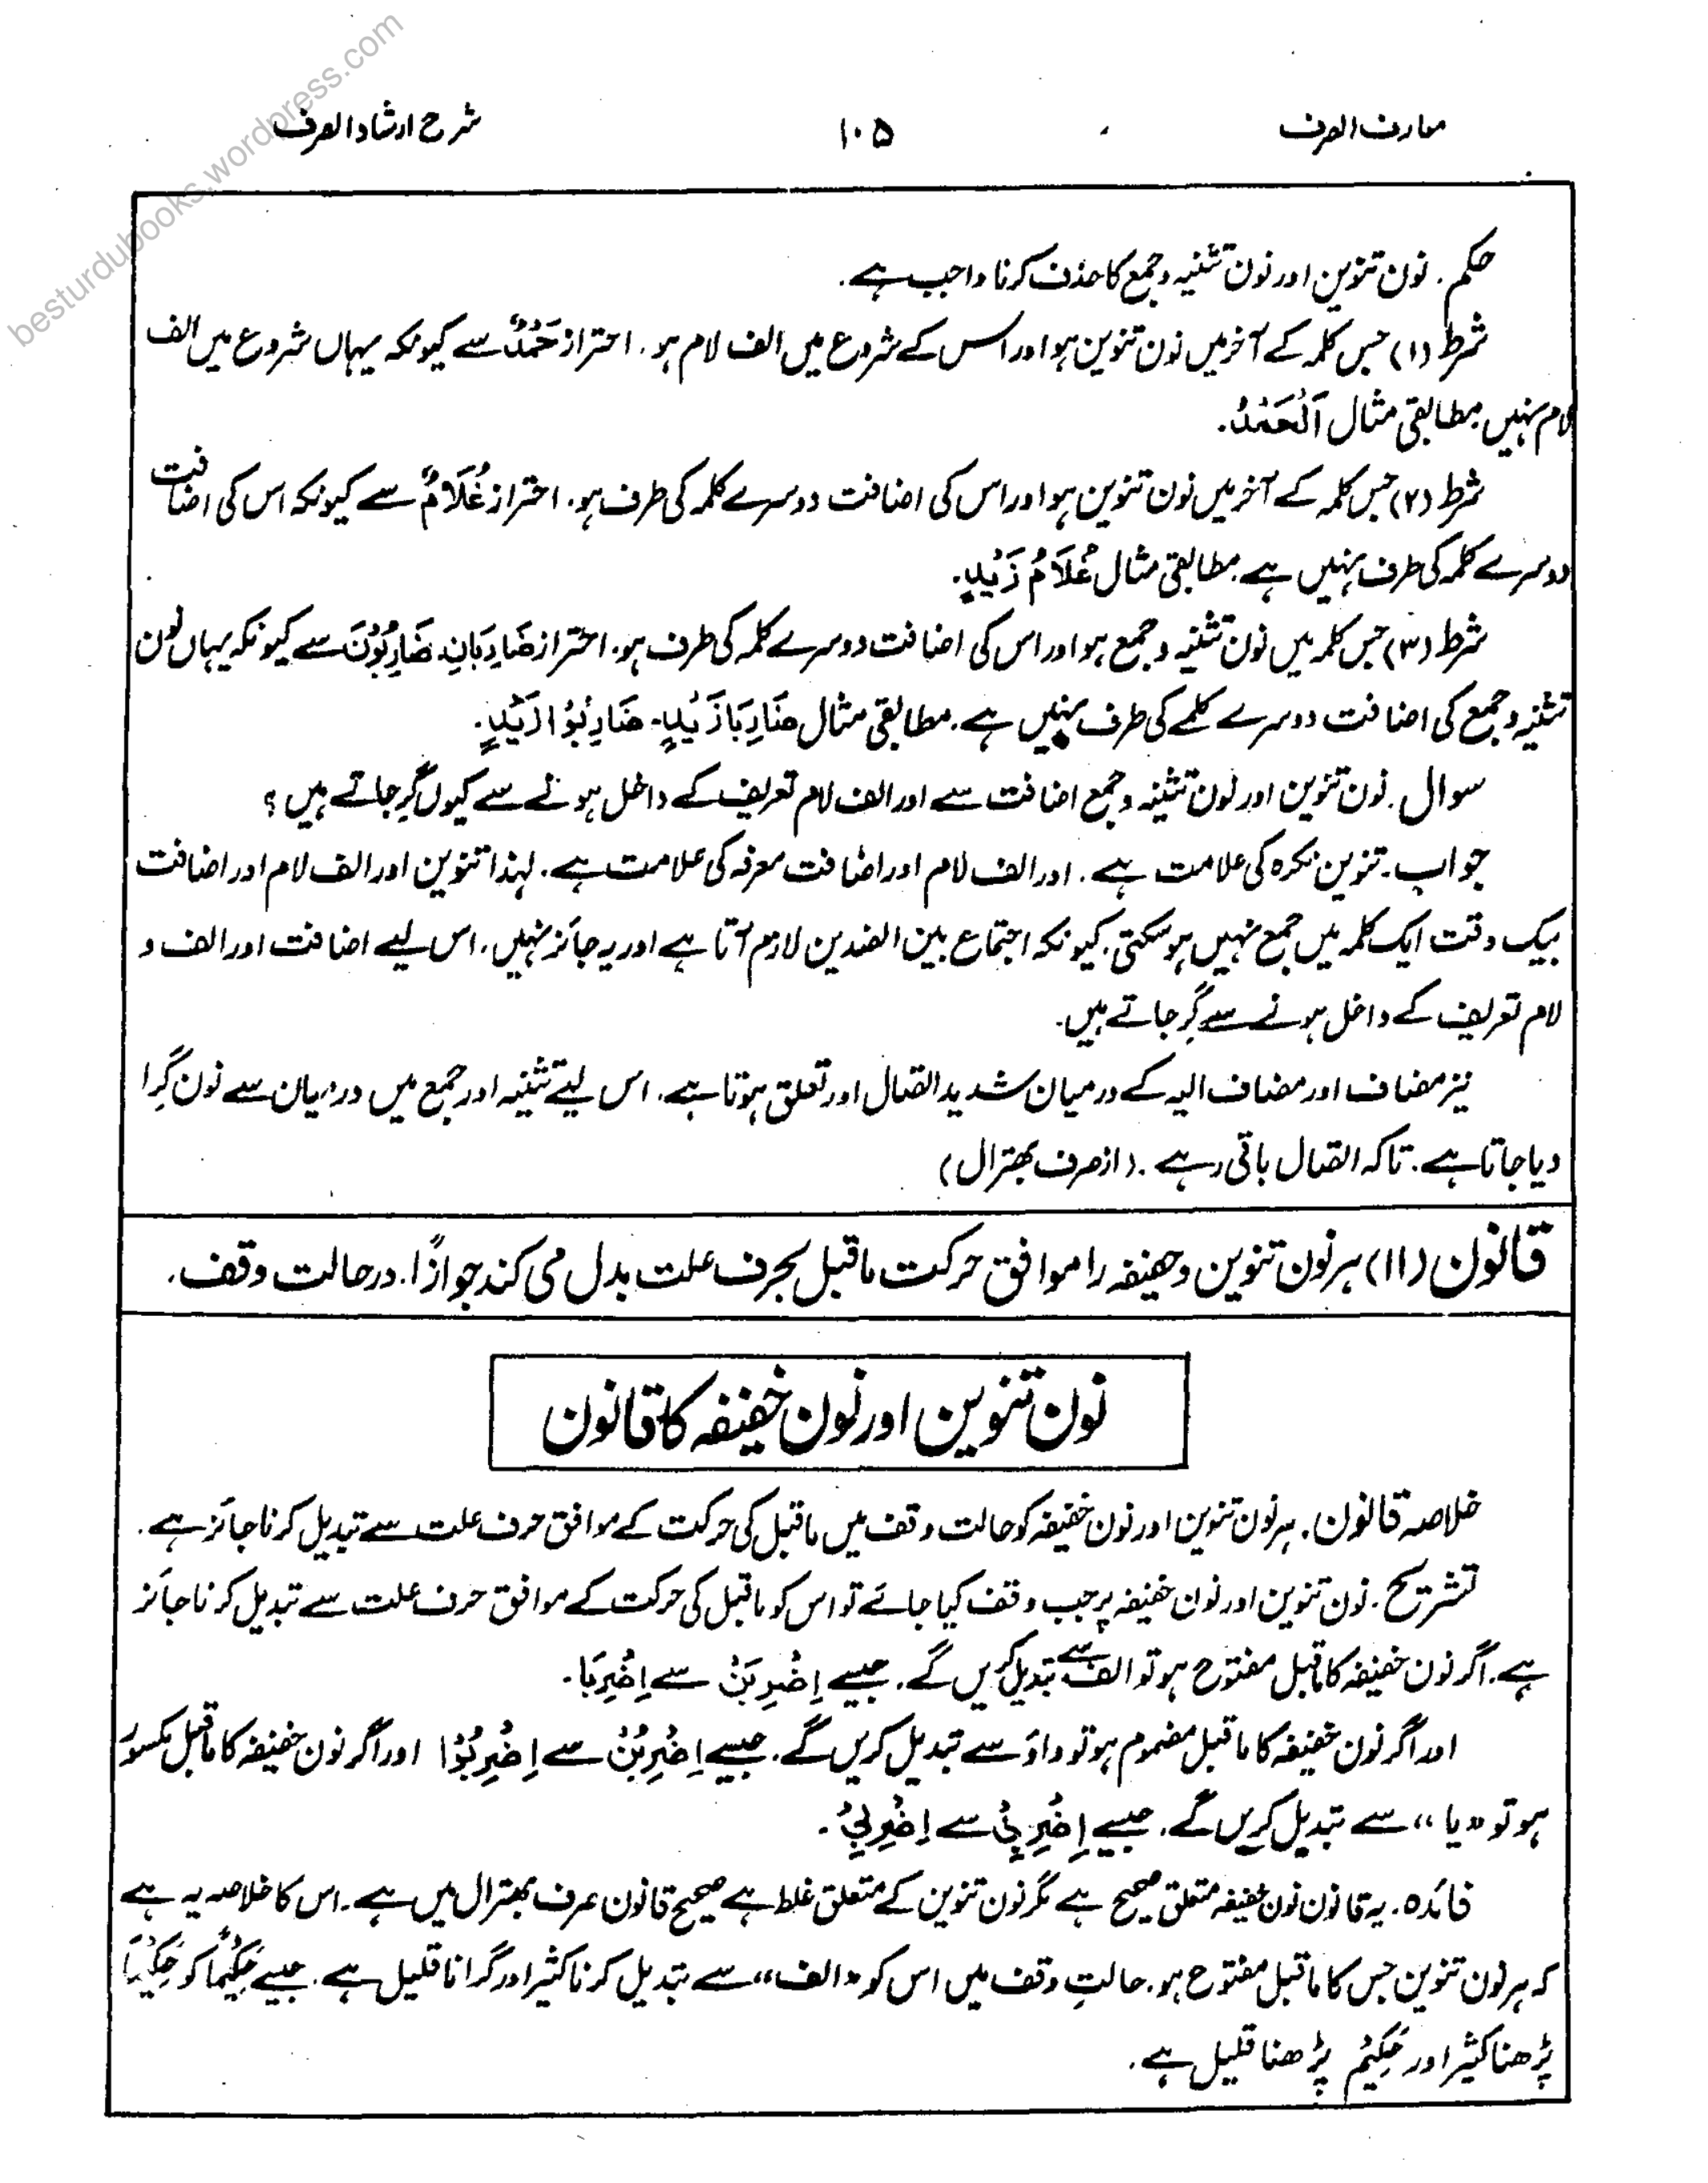 معارف الصرف ۱۰۵ شرح ارشاد الصرف
besturdubooks.wordpress.com
حکم. نون تنوین اور نون تثنیہ و جمع کا حذف کرنا واجب ہے.
شرط (۱) جس کلمہ کے آخر میں نون تنوین ہو اور اس کے شروع میں الف لام ہو. احتراز حَمْدٌ سے کیونکہ یہاں شروع میں الف
لام نہیں مطابقی مثال اَلْحَمْدُ.
شرط (۲) جس کلمہ کے آخر میں نون تنوین ہو اور اس کی اضافت دوسرے کلمہ کی طرف ہو. احتراز غُلَامٌ سے کیونکہ اس کی اضافت
دوسرے کلمہ کی طرف نہیں ہے. مطابقی مثال غُلَامُ زَیْدٍ.
شرط (۳) جس کلمہ میں نون تثنیہ و جمع ہو اور اس کی اضافت دوسرے کلمہ کی طرف ہو. احتراز ضَارِبَانِ ضَارِبُوْنَ سے کیونکہ یہاں نون
تثنیہ و جمع کی اضافت دوسرے کلمے کی طرف نہیں ہے. مطابقی مثال ضَارِبَا زَیْدٍ۔ ضَارِبُوْا زَیْدٍ.
سوال. نون تنوین اور نون تثنیہ و جمع اضافت سے اور الف لام تعریف کے داخل ہونے سے کیوں گِر جاتے ہیں؟
جواب۔ تنوین نکرہ کی علامت ہے. اور الف لام اور اضافت معرفہ کی علامت ہے. لہذا تنوین اور الف لام اور اضافت
بیک وقت ایک کلمہ میں جمع نہیں ہو سکتی. کیونکہ اجتماع بین الضدین لازم آتا ہے اور یہ جائز نہیں. اس لیے اضافت اور الف و
لام تعریف کے داخل ہونے سے گِر جاتے ہیں.
نیز مضاف اور مضاف الیہ کے درمیان شدید اتصال اور تعلق ہوتا ہے. اس لیے تثنیہ اور جمع میں درمیان سے نون گِرا
دیا جاتا ہے. تاکہ اتصال باقی رہے. (از صرف بھترال)
قانون (۱۱) ہر نون تنوین و خفیفہ را موافق حرکت ماقبل بحرف علت بدل می کند جوازًا. در حالت وقف.
نون تنوین اور نون خفیفہ کا قانون
خلاصہ قانون. ہر نون تنوین اور نون خفیفہ کو حالت وقف میں ماقبل کی حرکت کے موافق حرف علت سے تبدیل کرنا جائز ہے.
تشریح. نون تنوین اور نون خفیفہ پر جب وقف کیا جائے تو اس کو ماقبل کی حرکت کے موافق حرف علت سے تبدیل کرنا جائز
ہے. اگر نون خفیفہ کا ماقبل مفتوح ہو تو الف سے تبدیل کریں گے. جیسے اِضْرِبَنْ سے اِضْرِبَا.
اور اگر نون خفیفہ کا ماقبل مضموم ہو تو واؤ سے تبدیل کریں گے. جیسے اِضْرِبُنْ سے اِضْرِبُوْا اور اگر نون خفیفہ کا ماقبل مکسور
ہو تو «یا» سے تبدیل کریں گے. جیسے اِضْرِبِنْ سے اِضْرِبِیْ.
فائدہ. یہ قانون نون خفیفہ متعلق صحیح ہے مگر نون تنوین کے متعلق غلط ہے صحیح قانون صرف بھترال میں ہے۔ اس کا خلاصہ یہ ہے
کہ ہر نون تنوین جس کا ماقبل مفتوح ہو. حالتِ وقف میں اس کو «الف» سے تبدیل کرنا کثیر اور گرانا قلیل ہے. جیسے حَکِیْمًا کو حَکِیْمَا
پڑھنا کثیر اور حَکِیْمْ پڑھنا قلیل ہے.